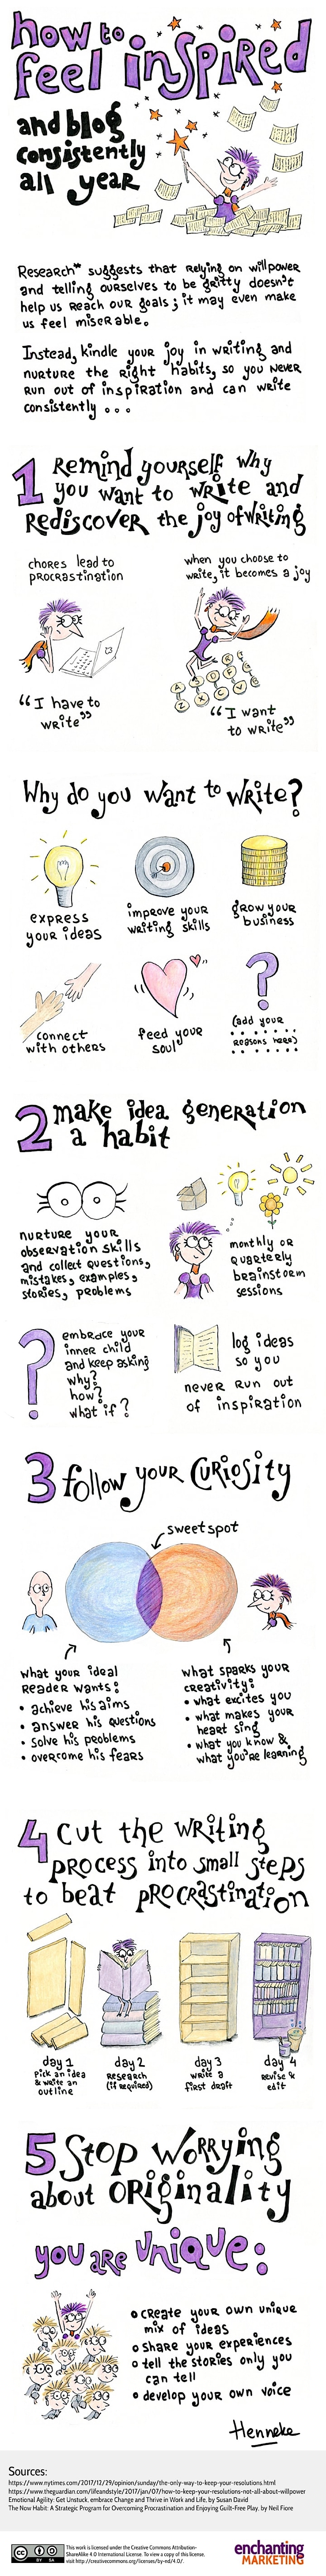 how to
feel inspired
and blog
consistently
all year
Research* suggests that relying on willpower
and telling ourselves to be gritty doesn't
help us reach our goals; it may even make
us feel miserable.
Instead, kindle your joy in writing and
nurture the right habits, so you never
run out of inspiration and can write
consistently ...
1 Remind yourself why
you want to write and
rediscover the joy of writing
chores lead to
procrastination
when you choose to
write, it becomes a joy
"I have to
write"
A S D F R C
Z X C F V
"I want
to write"
Why do you want to write?
express
your ideas
improve your
writing skills
grow your
business
connect
with others
feed your
soul
?
(add your
reasons here)
2 make idea generation
a habit
nurture your
observation skills
and collect questions,
mistakes, examples,
stories, problems
monthly or
quarterly
brainstorm
sessions
?
embrace your
inner child
and keep asking
why?
how?
what if?
log ideas
so you
never run out
of inspiration
3 follow your curiosity
sweet spot
what your ideal
reader wants:
• achieve his aims
• answer his questions
• solve his problems
• overcome his fears
what sparks your
creativity:
• what excites you
• what makes your
heart sing
• what you know &
what you're learning
4 cut the writing
process into small steps
to beat procrastination
day 1
Pick an idea
& write an
outline
day 2
Research
(if required)
day 3
write a
first draft
day 4
Revise &
edit
5 Stop worrying
about originality
you are unique:
• create your own unique
mix of ideas
• share your experiences
• tell the stories only you
can tell
• develop your own voice
Henneke
Sources:
https://www.nytimes.com/2017/12/29/opinion/sunday/the-only-way-to-keep-your-resolutions.html
https://www.theguardian.com/lifeandstyle/2017/jan/07/how-to-keep-your-resolutions-not-all-about-willpower
Emotional Agility: Get Unstuck, embrace Change and Thrive in Work and Life, by Susan David
The Now Habit: A Strategic Program for Overcoming Procrastination and Enjoying Guilt-Free Play. by Neil Fiore
cc BY SA
This work is licensed under the Creative Commons Attribution-
ShareAlike 4.0 International License. To view a copy of this license,
visit http://creativecommons.org/licenses/by-nd/4.0/.
enchanting
MARKETING